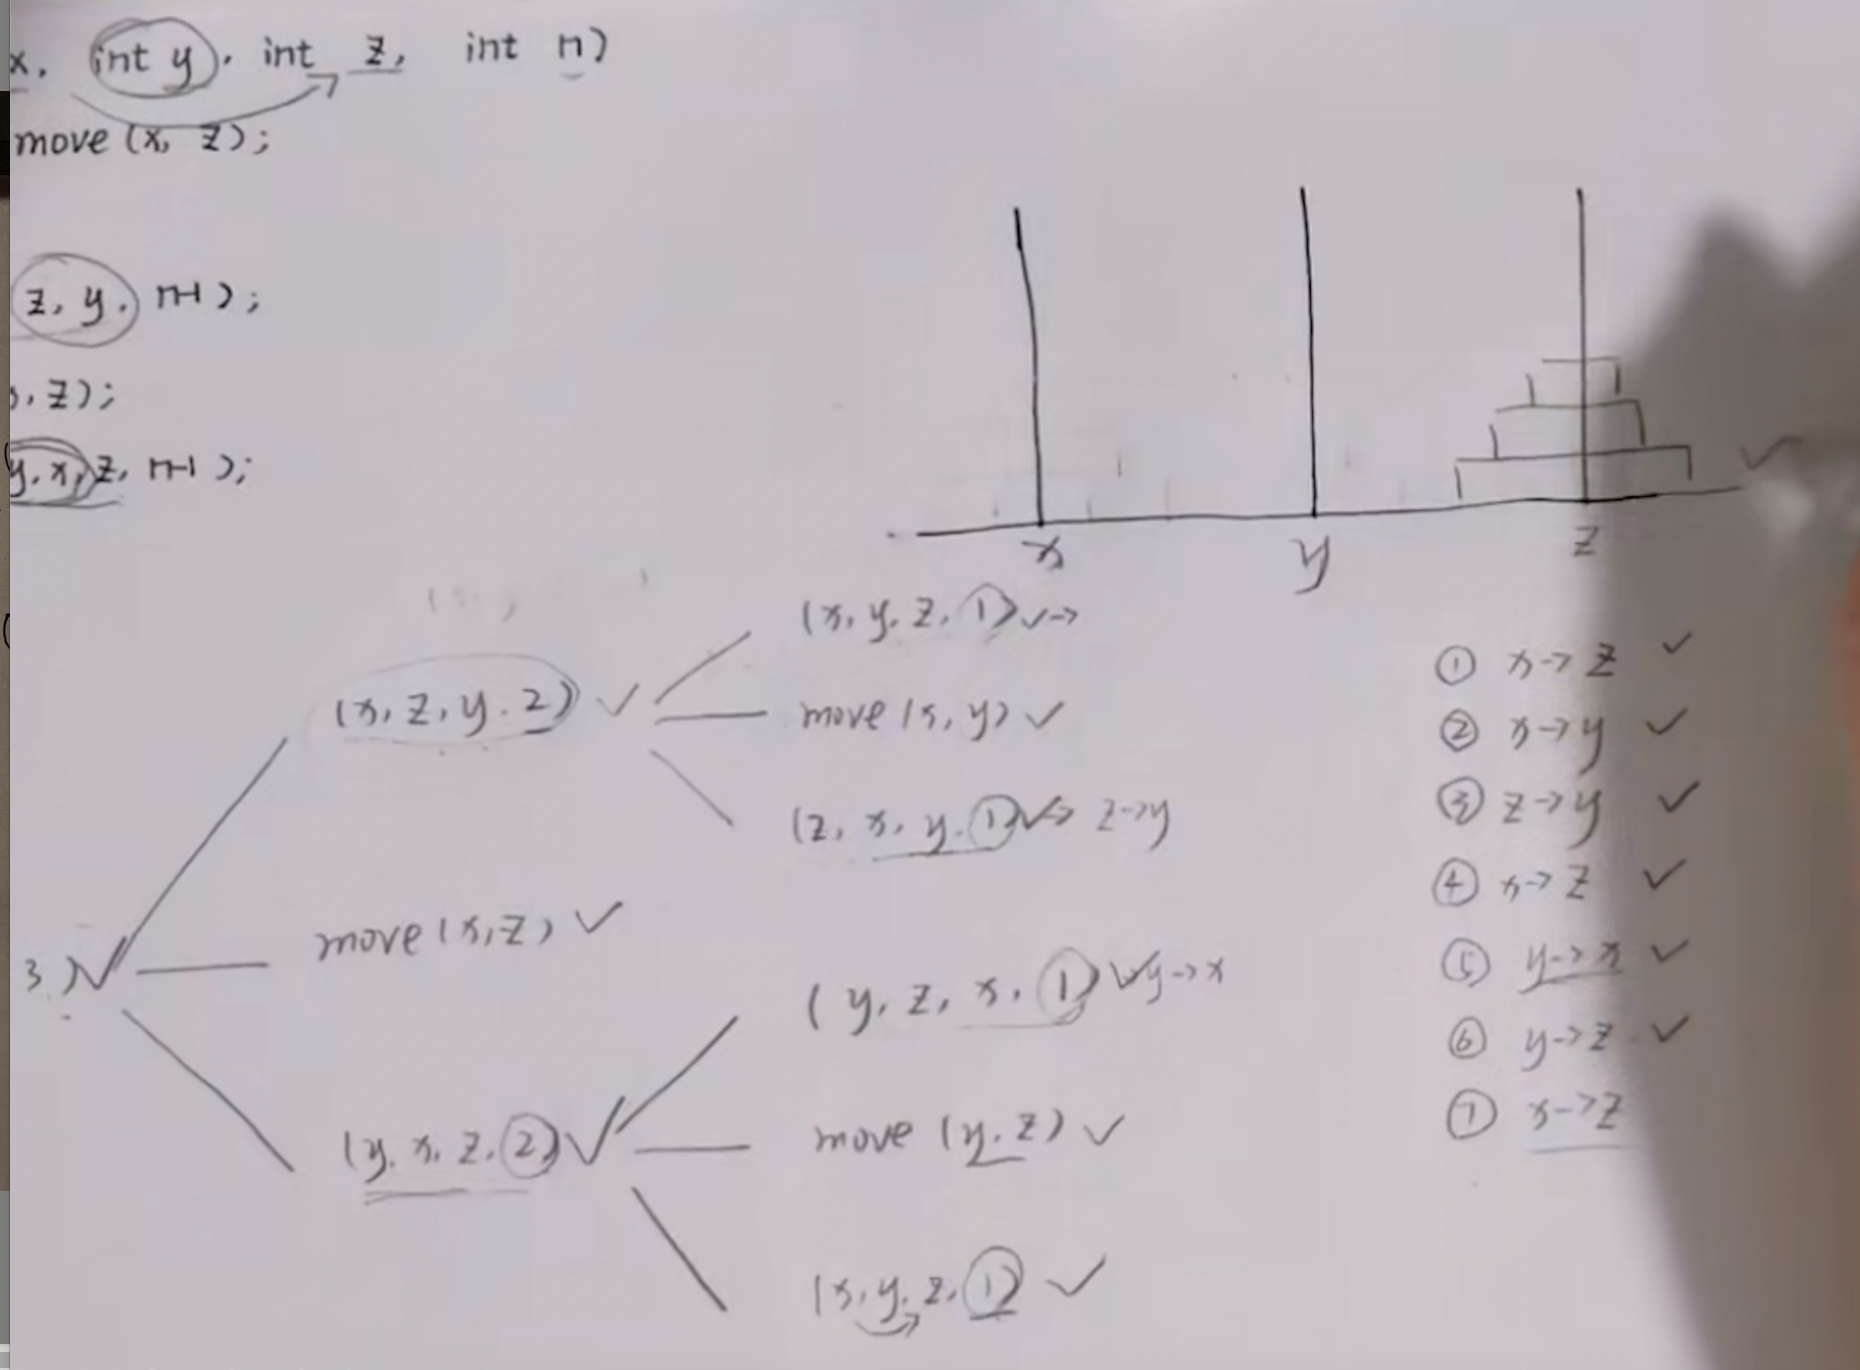 x, int y, int z, int n)
move (x, z);
z, y, n-1);
, z);
y, x, z, n-1);
x y z
(x, y, z, 1) ✓→
(x, z, y, 2) ✓
move (x, y) ✓
(z, x, y, 1) ✓→ z→y
move (x, z) ✓
3) ✓
(y, z, x, 1) ✓ y→x
(y, x, z, 2) ✓
move (y, z) ✓
(x, y, z, 1) ✓
① x→z ✓
② x→y ✓
③ z→y ✓
④ x→z ✓
⑤ y→x ✓
⑥ y→z ✓
⑦ x→z